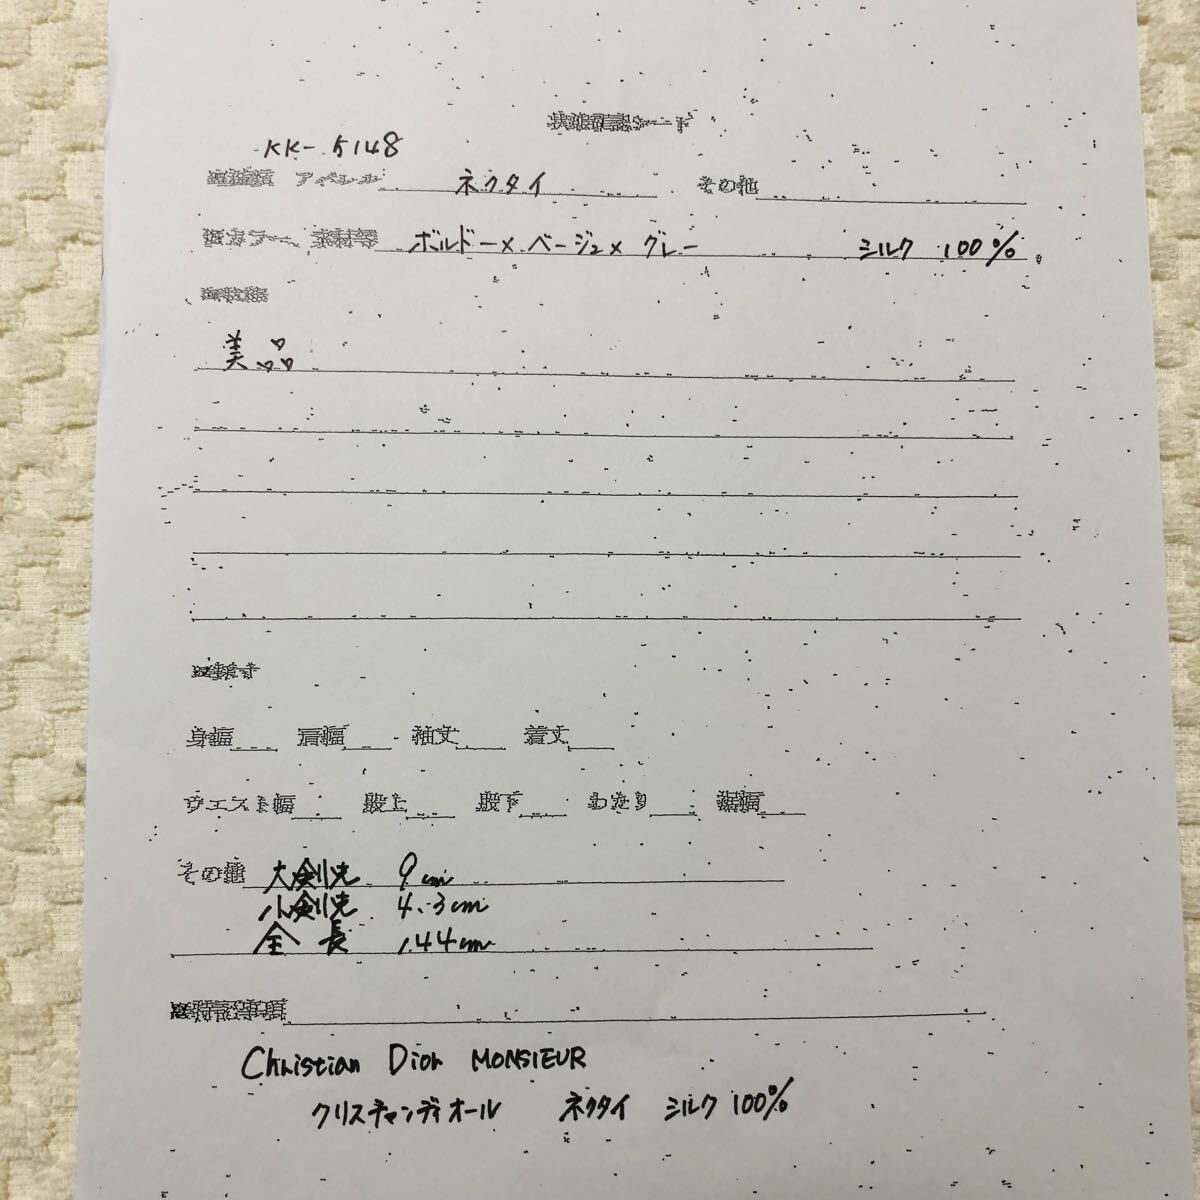 状態確認シート
KK-5148
アパレル ネクタイ その他
カラー、素材等 ボルドー×ベージュ×グレー シルク 100%
状態
美品
採寸
身幅 肩幅 袖丈 着丈
ウエスト幅 股上 股下 わたり 裾幅
その他 大剣先 9cm
小剣先 4.3cm
全長 144cm
特記事項
Christian Dior MONSIEUR
クリスチャンディオール ネクタイ シルク 100%